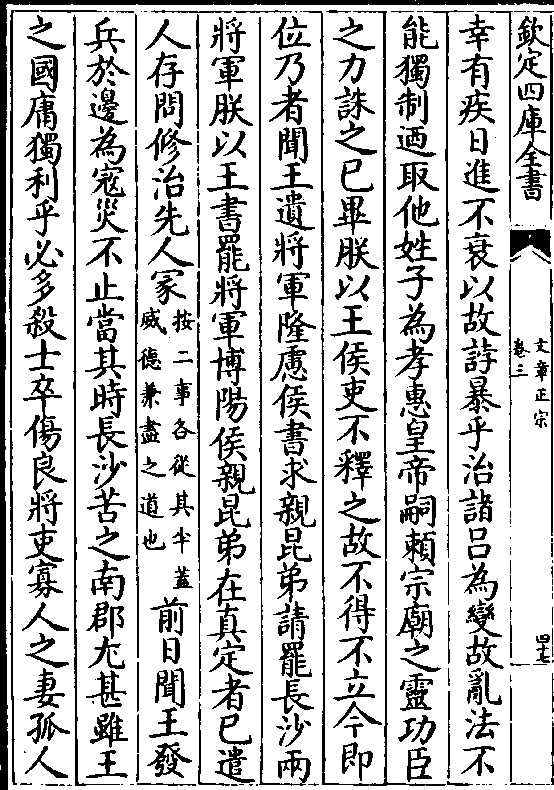 欽定四庫全書
文章正宗
卷三
四十七
幸有疾日進不衰以故誖暴乎治諸呂為變故亂法不
能獨制迺取他姓子為孝惠皇帝嗣頼宗廟之靈功臣
之力誅之已畢朕以王侯吏不釋之故不得不立今即
位乃者聞王遺將軍隆慮侯書求親昆弟請罷長沙兩
將軍朕以王書罷將軍博陽侯親昆弟在真定者已遣
人存問修治先人冢按二事各從其半蓋
威德兼盡之道也前日聞王發
兵於邊為寇災不止當其時長沙苦之南郡尤甚雖王
之國庸獨利乎必多殺士卒傷良將吏寡人之妻孤人